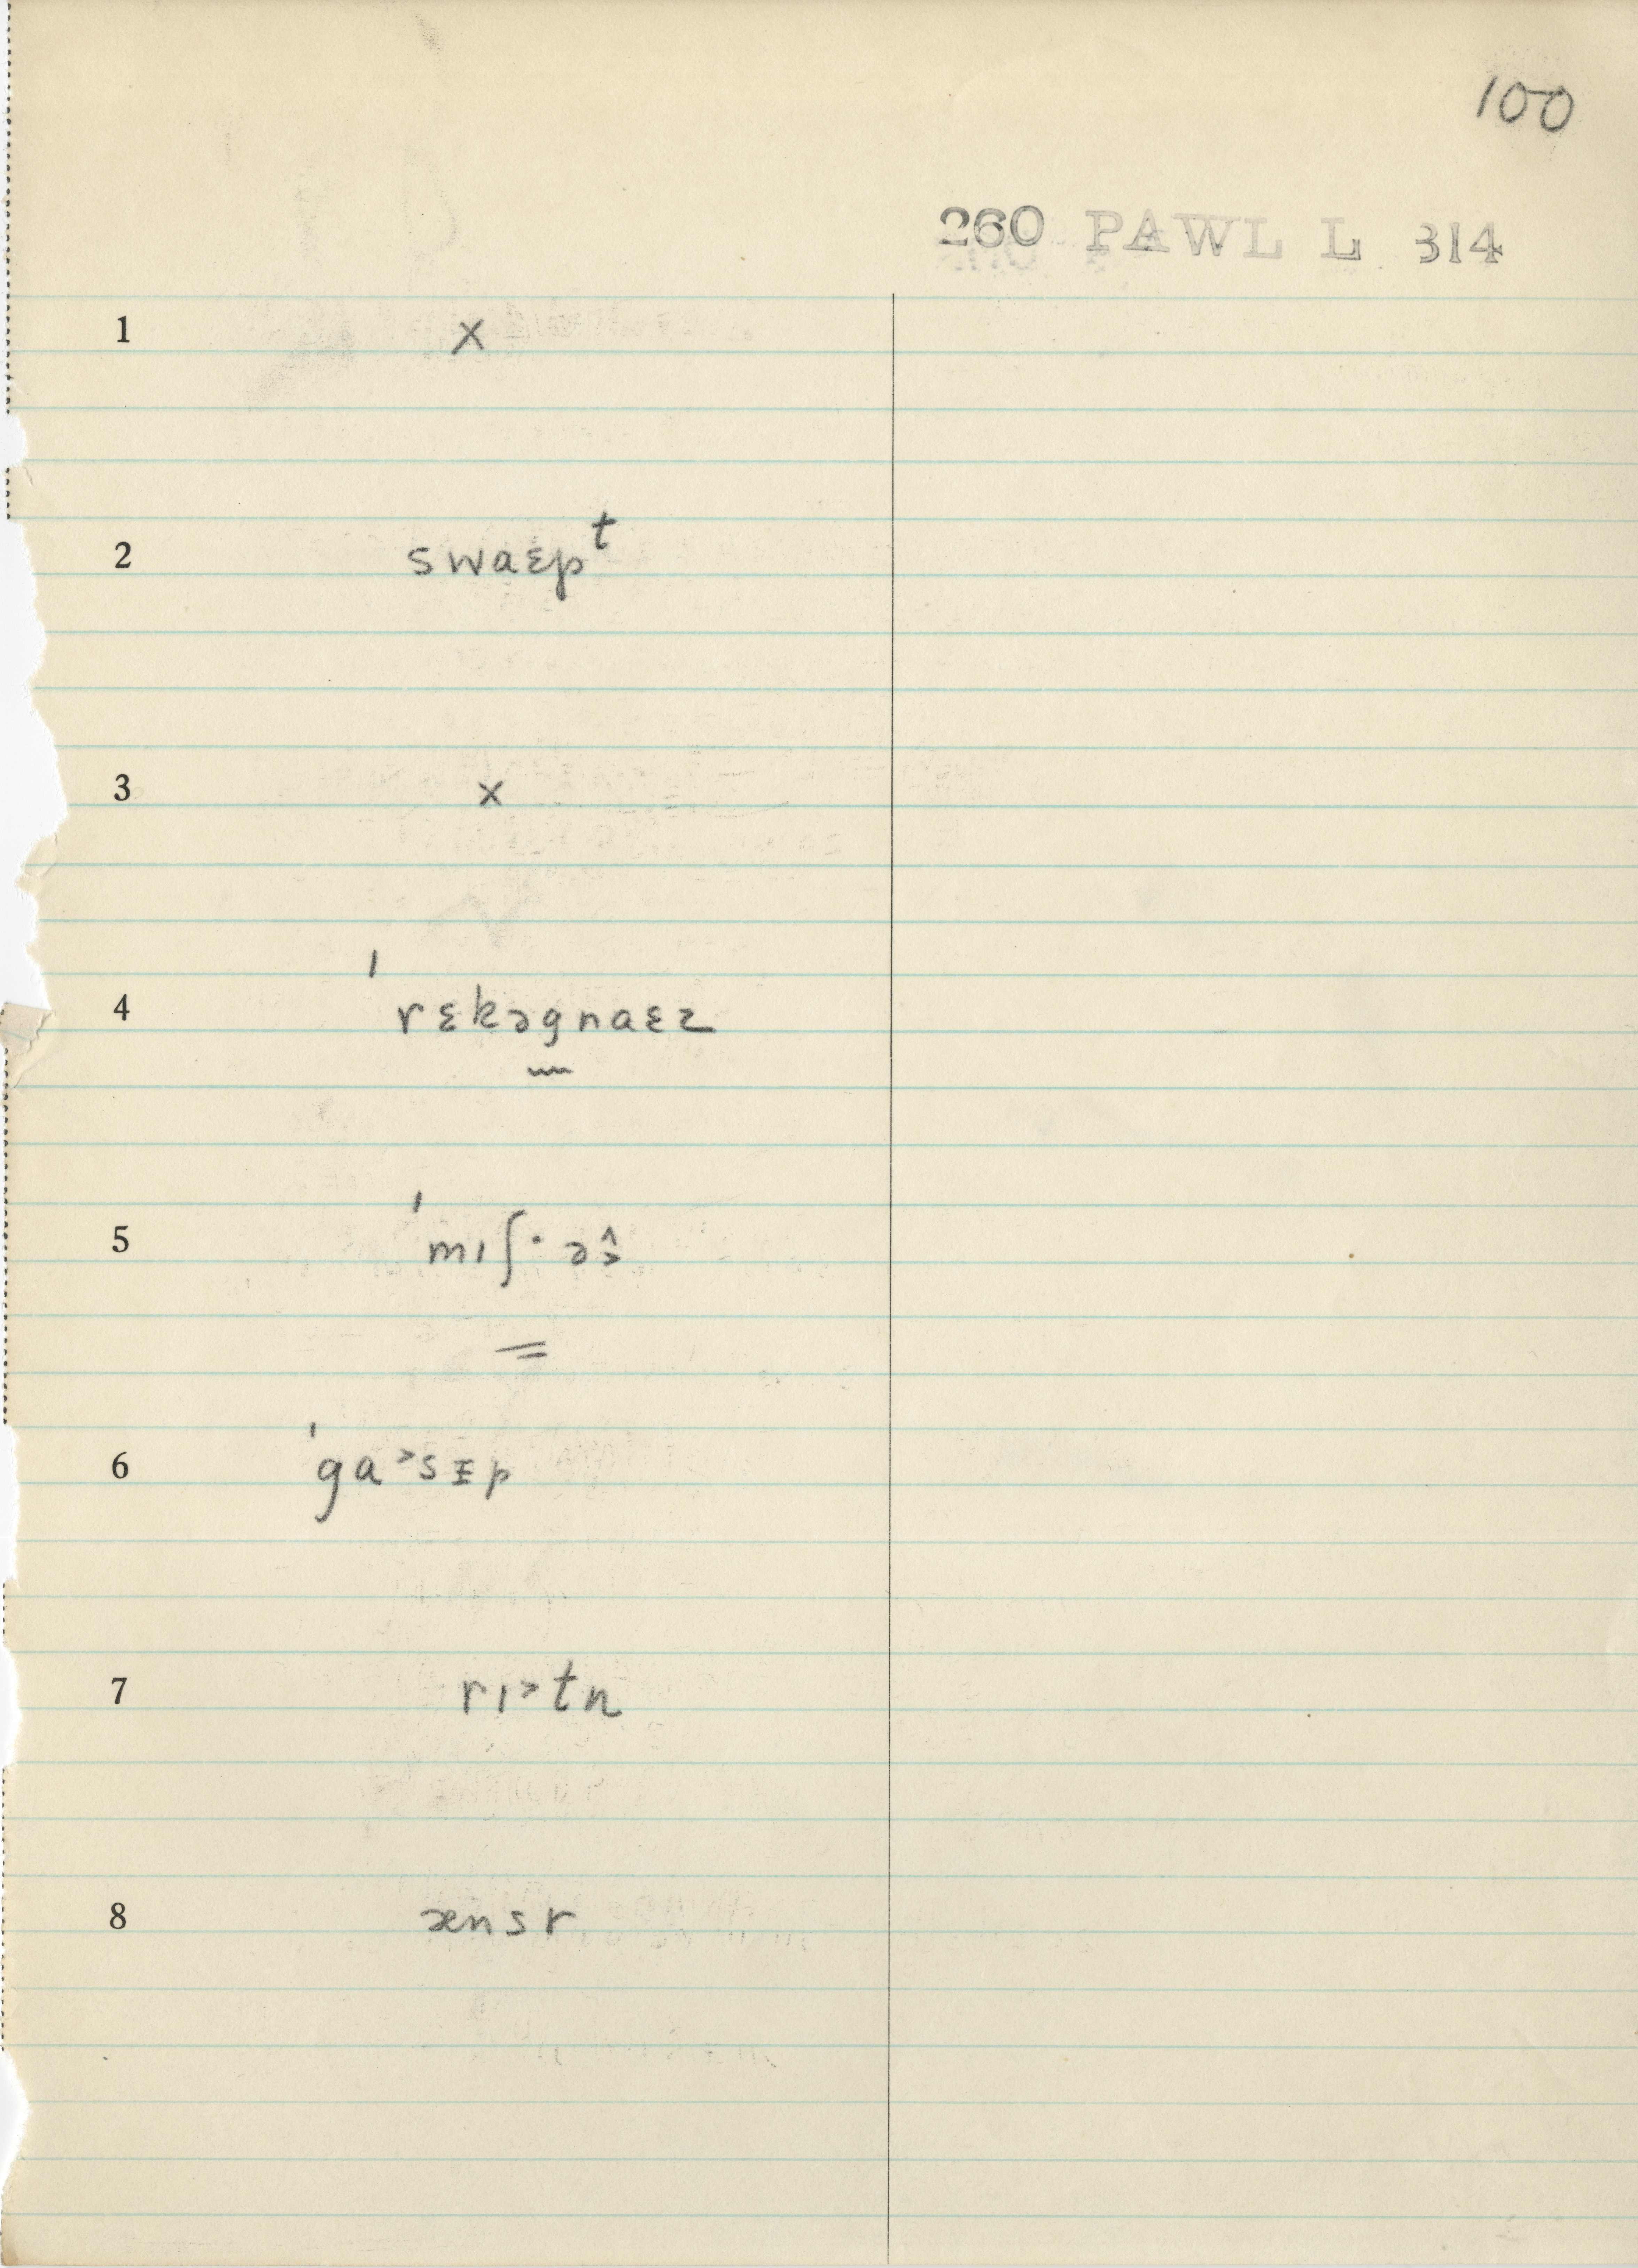 100
260 PAWL L 314
1 x
2 swaɛpᵗ
3 x
4 ˈrɛkəgnaɛz
5 ˈmɪʃ· əŝ
6 ˈga˃sɪp
7 rɪ˃tn
8 ænsr